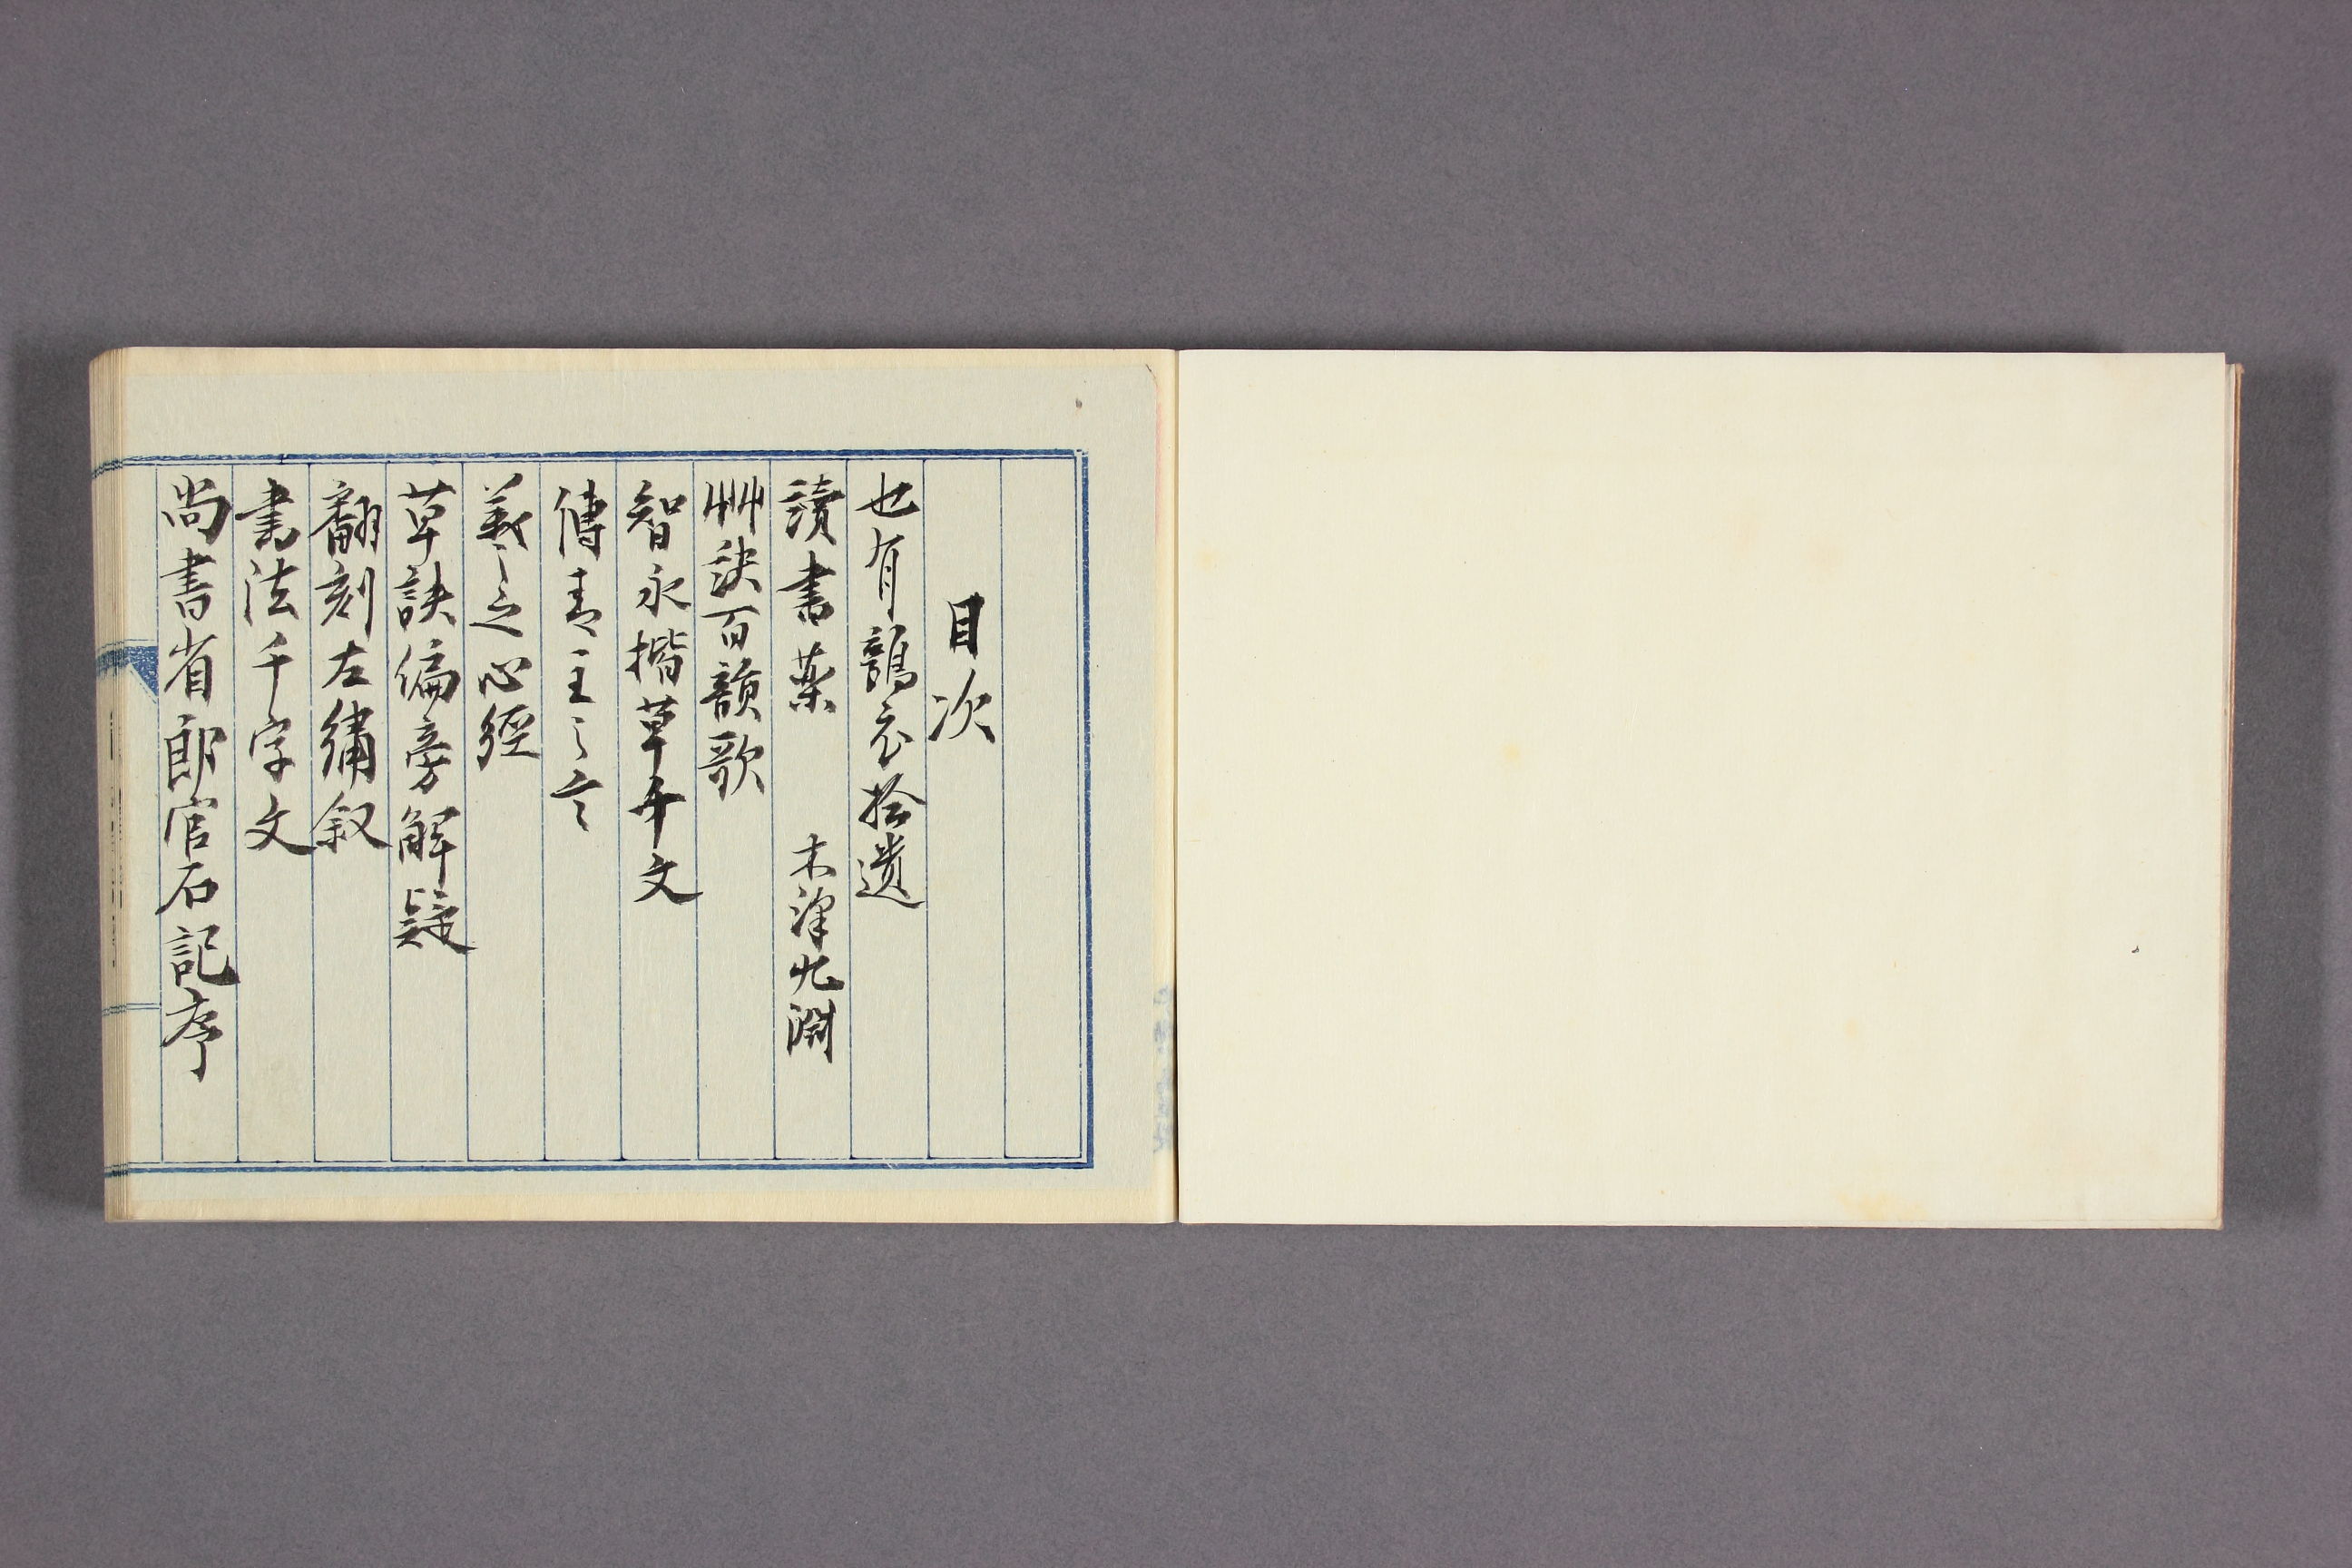 目次
也有鶉衣拾遺
讀書藥 木澤九淵
艸訣百韻歌
智永楷草千文
傅青主之言
羲之心經
草訣偏旁解疑
翻刻左繡叙
書法千字文
尚書省郎官石記序